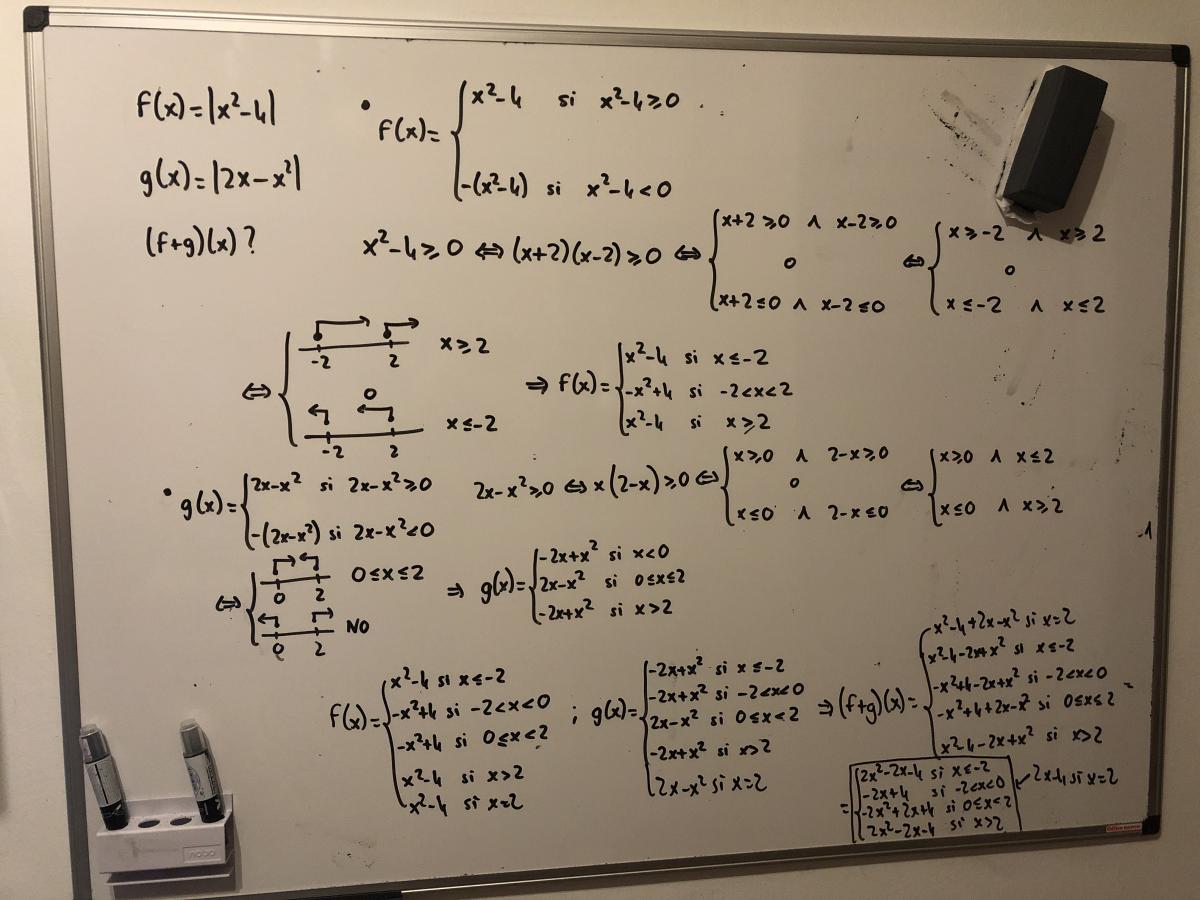 f(x)=|x²-4|
g(x)=|2x-x²|
(f+g)(x)?
• f(x)= { x²-4 si x²-4≥0
-(x²-4) si x²-4<0
x²-4≥0 ⇔ (x+2)(x-2)≥0 ⇔ { x+2≥0 ∧ x-2≥0
o
x+2≤0 ∧ x-2≤0
⇔ { x≥-2 ∧ x≥2
o
x≤-2 ∧ x≤2
⇔ { -2 2 x≥2
o
-2 2 x≤-2
⇒ f(x)= { x²-4 si x≤-2
-x²+4 si -2<x<2
x²-4 si x≥2
• g(x)= { 2x-x² si 2x-x²≥0
-(2x-x²) si 2x-x²<0
2x-x²≥0 ⇔ x(2-x)≥0 ⇔ { x≥0 ∧ 2-x≥0
o
x≤0 ∧ 2-x≤0
⇔ { x≥0 ∧ x≤2
x≤0 ∧ x≥2
⇔ { 0 2 0≤x≤2
0 2 NO
⇒ g(x)= { -2x+x² si x<0
2x-x² si 0≤x≤2
-2x+x² si x>2
f(x)= { x²-4 si x≤-2
-x²+4 si -2<x<0
-x²+4 si 0≤x<2
x²-4 si x>2
x²-4 si x=2
; g(x)= { -2x+x² si x≤-2
-2x+x² si -2<x<0
2x-x² si 0≤x<2
-2x+x² si x>2
2x-x² si x=2
⇒ (f+g)(x)= { x²-4+2x-x² si x=2
x²-4-2x+x² si x≤-2
-x²+4-2x+x² si -2<x<0
-x²+4+2x-x² si 0≤x≤2 =
x²-4-2x+x² si x>2
= { 2x²-2x-4 si x≤-2
-2x+4 si -2<x<0
-2x²+2x+4 si 0≤x<2
2x²-2x-4 si x>2
2x-4 si x=2
nobo